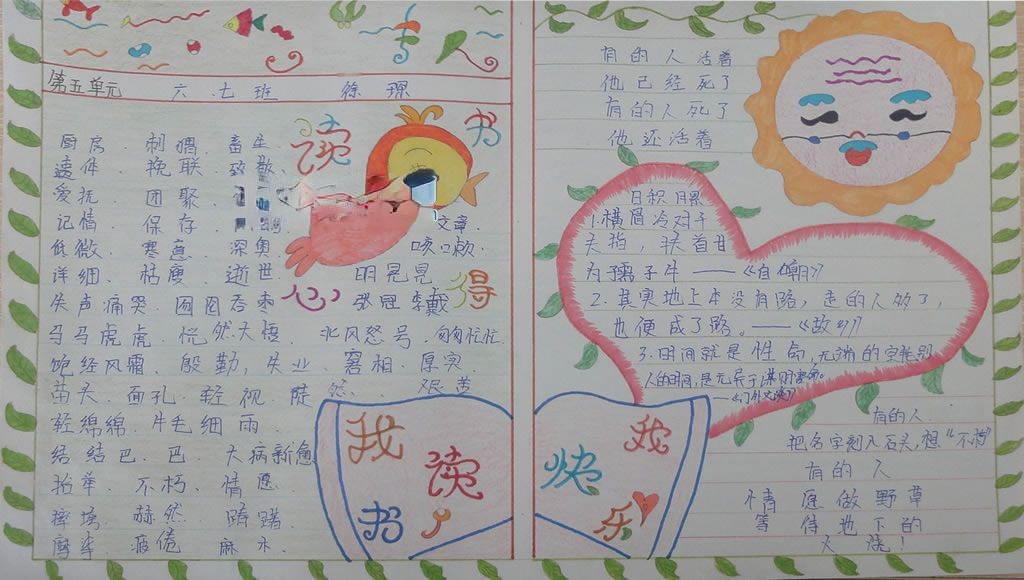 第五单元 六.七班 徐琛
读书
心得
厨房、刺猬、畜生
遗体、挽联、致敬
爱抚、团聚、
记性、保存、 文章、
低微、寒意、深奥 咳嗽、
详细、枯瘦、逝世、明晃晃
失声痛哭、囫囵吞枣、张冠李戴
马马虎虎、恍然大悟、北风怒号、匆匆忙忙、
饱经风霜、殷勤、失业、窘相、厚实
苗头、面孔、轻视、 艰苦
轻绵绵、牛毛细雨、
结结巴巴、大病新愈
抬举、不朽、情愿、
赫然、踌躇、
疲倦、麻木、
我
读
书
我
快
乐
有的人活着
他已经死了
有的人死了
他还活着
日积月累
1.横眉冷对千
夫指，扶首甘
为孺子牛——《自嘲》
2.其实地上本没有路，走的人多了，
也便成了路。——《故乡》
3.时间就是性命，无端的空耗别
人的时间，是无异于谋财害命。
——《门外文谈》
有的人
把名字刻入石头，想“不朽”
有的人
情愿做野草
等待地下的
火烧！